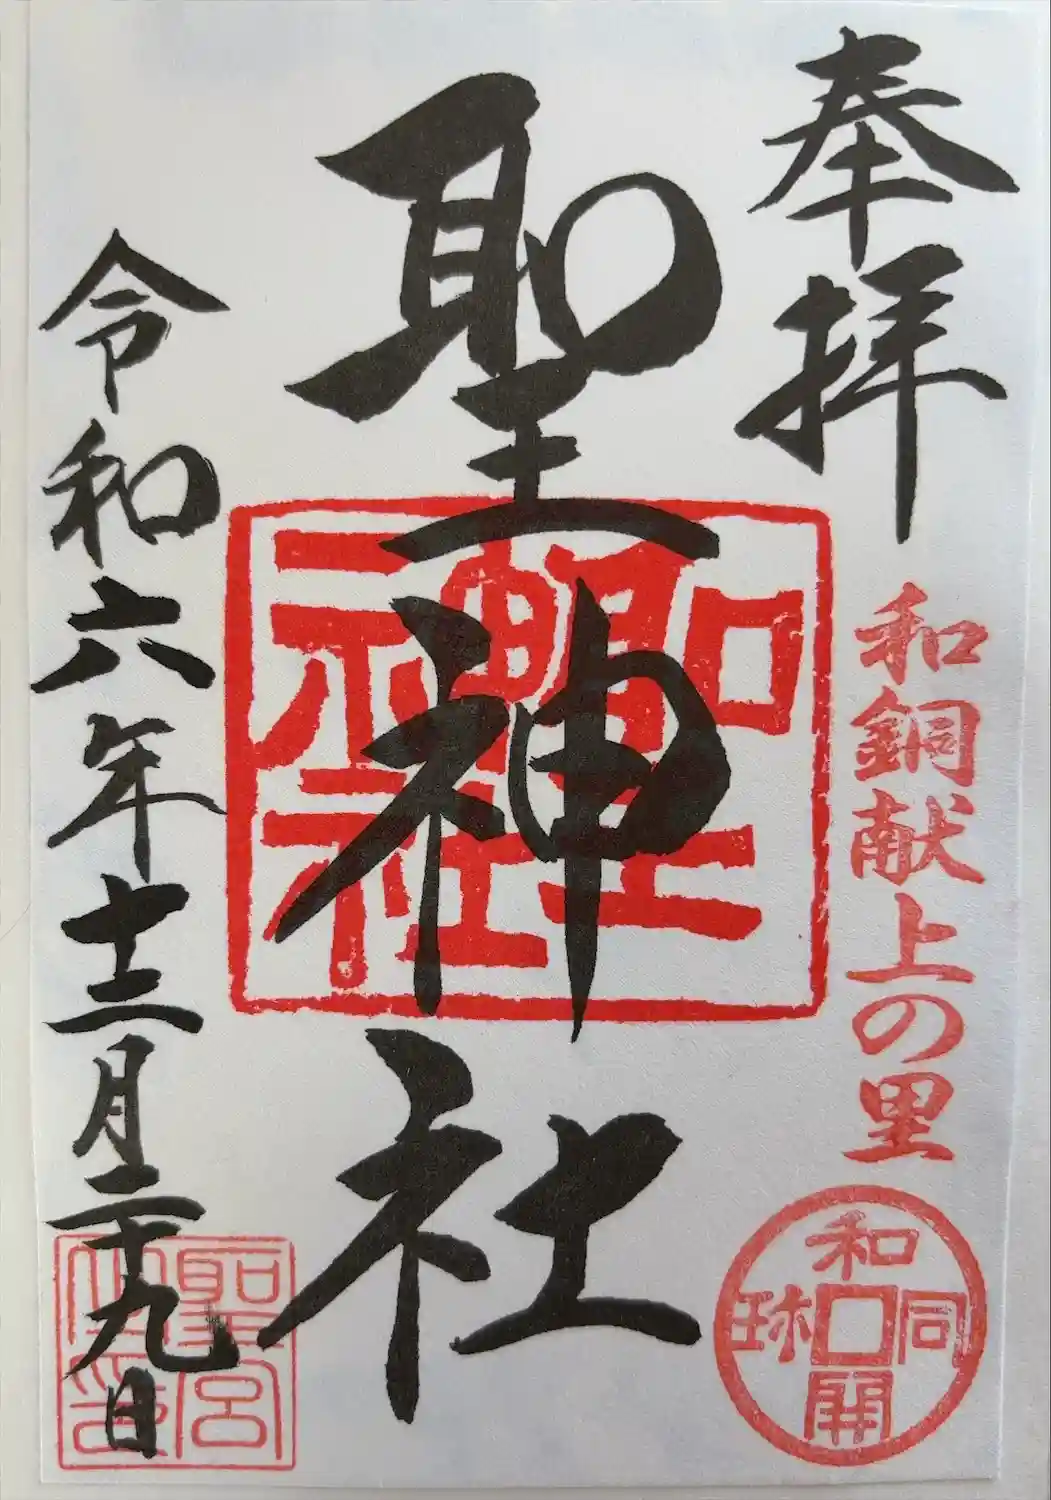 奉拝
和銅献上の里
和同開珎
聖神社
聖神社
令和六年十二月二十九日
聖宮